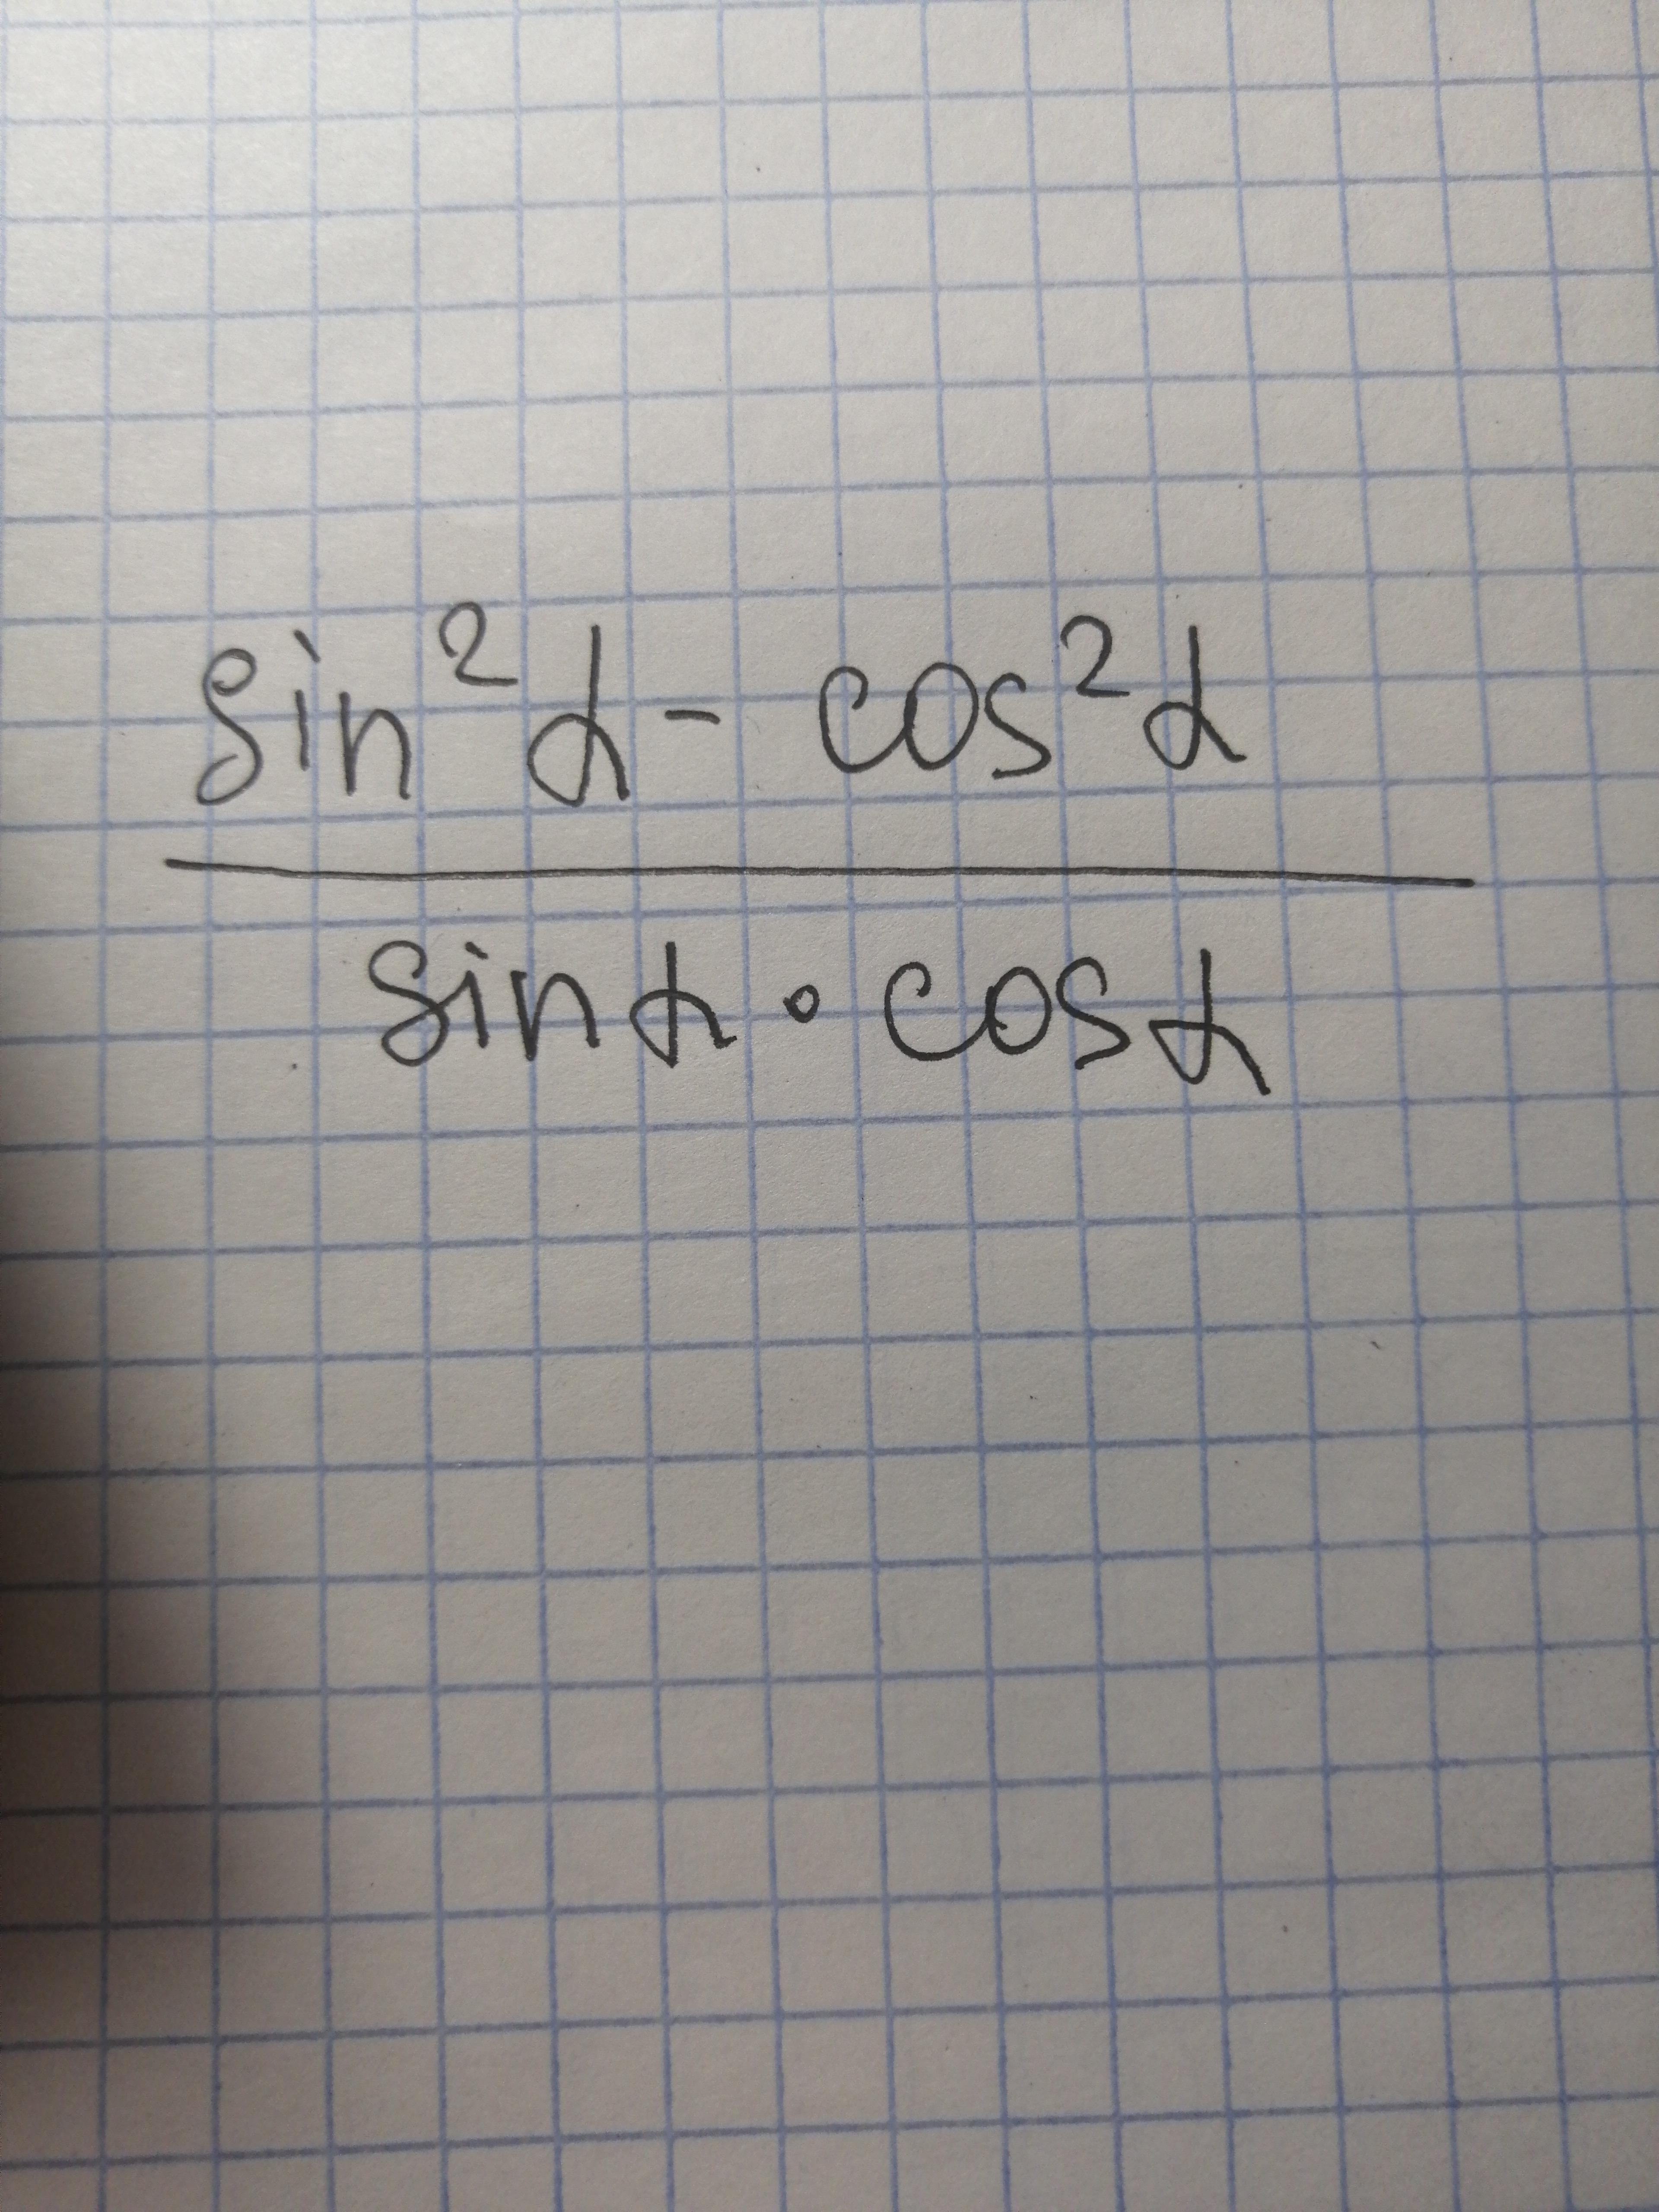 sin²α - cos²α
sinα · cosα